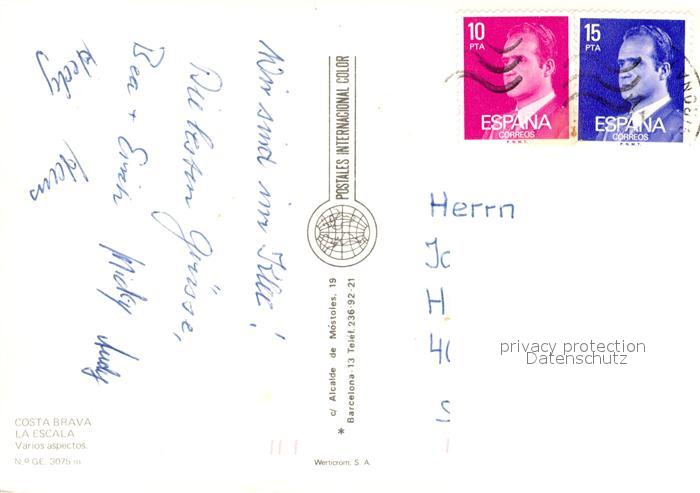 Wir sind im Klee!
Die besten Grüsse,
Bea + Erich Micky Andy
Hedy Hans
POSTALES INTERNACIONAL COLOR
c/ Alcalde de Móstoles, 19
Barcelona-13 Teléf. 236-92-21
*
COSTA BRAVA
LA ESCALA
Varios aspectos.
N.º GE. 3075
Werticrom, S. A.
10
PTA
ESPAÑA
CORREOS
F.N.M.T.
15
PTA
ESPAÑA
CORREOS
F.N.M.T.
Herrn
H
privacy protection
Datenschutz